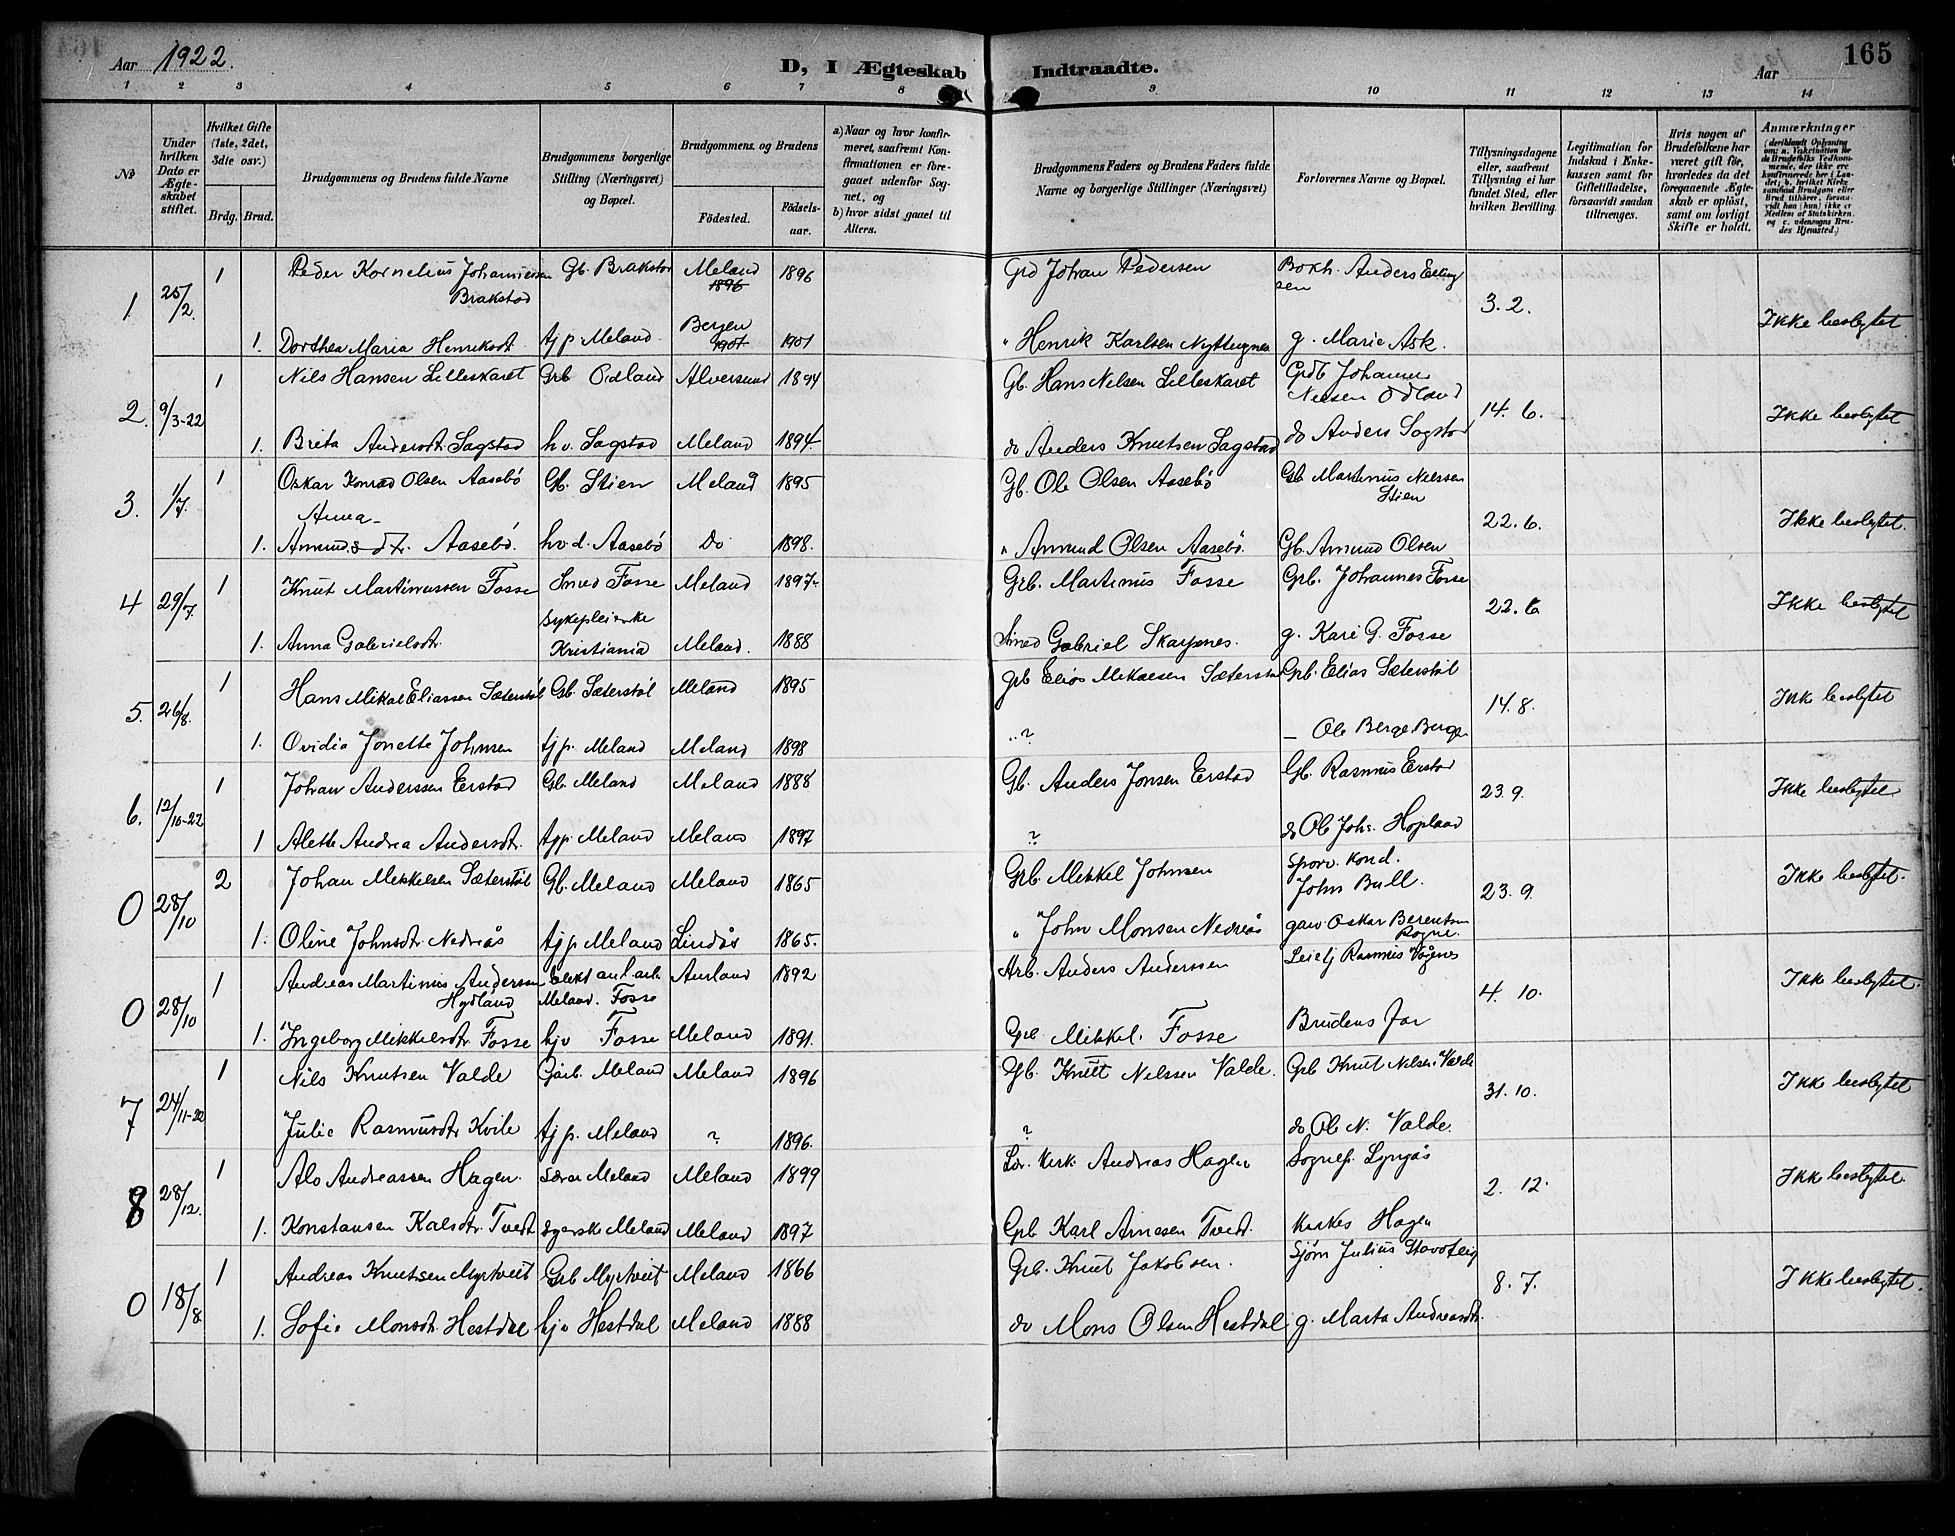 Aar 1922. D, I Ægteskab Indtraadte. Aar 165
1 2 3 4 5 6 7 8 9 10 11 12 13 14
No
Under hvilken Dato er Ægteskabet stiftet.
Hvilket Gifte (1ste, 2det, 3die osv.)
Brdg. Brud.
Brudgommens og Brudens fulde Navne
Brudgommens borgerlige Stilling (Næringsvei) og Bopæl.
Brudgommens og Brudens
Födested. Födselsaar.
a) Naar og hvor konfirmeret, saafremt Konfirmationen er foregaaet udenfor Sognet, og
b) hvor sidst gaaet til Alters.
Brudgommens Faders og Brudens Faders fulde Navne og borgerlige Stillinger (Næringsvei)
Forlovernes Navne og Bopæl.
Tillysningsdagene eller, saafremt Tillysning ei har fundet Sted, efter hvilken Bevilling.
Legitimation for Indskud i Enkekassen samt for Giftetilladelse, forsaavidt saadan tiltrænges.
Hvis nogen af Brudefolkene har været gift før, hvorledes da det foregaaende Ægteskab er oplöst, samt om lovligt Skifte er holdt.
Anmærkninger (deriblandt Oplysning om: a. Vakcination for de Brudefolks Vedkommende, der ikke ere konfirmerede her i Landet; b. hvilket Kirkesamfund Brudgom eller Brud tilhører, forsaavidt han (hun) ikke er Medlem af Statskirken, og c. udensogns Brudes Hjemsted.)
1. 25/2. 1 Peder Kornelius Johannessen Brakstad Gb. Brakstad Meland 1896 1896 Johan Pedersen Boxh. Anders Ellingsen 3. 2. Ikke beslegtet
1. Dorthea Maria Henriksdt. tj p Meland. Bergen 1901 1901 " Henrik Karlsen g. Marie Ask.
2. 9/3-22 1 Nils Hansen Lilleskaret Grb Odland Alversund 1894 Gb. Hans Nelsen Lilleskaret Grdb Johannes Nelsen Odland 14. 6. Ikke beslegtet
1. Brita Andersdt. Sagstad h.v. Sagstad Meland 1894. do Anders Knutsen Sagstad do Anders Sagstad
3. 1/7. 1 Oskar Konrad Olsen Aasebö Gb. Stien Meland 1895 Gb. Ole Olsen Aasebö Gb Martinus Nelssen Stien 22. 6. Ikke beslegtet.
Anna
1. Amundsdt. Aasebö. hv.d. Aasebö Do 1898. " Amund Olsen Aasebö. Gb. Amund Olsen
4 29/7. 1 Knut Martinussen Fosse Smed Fosse Meland 1897. Grb. Martinus Fosse Grb. Johannes Fosse 22. 6 Ikke beslegtet
1. Anna Gabrielsdt. Sykepleierske Kristiania Meland. 1888 Smed Gabriel Skarpenes. g. Kari G. Fosse
5. 26/8. 1 Hans Mikal Eliassen Sæterstöl Gb. Sæterstöl Meland 1895 grb Elias Mekalsen Sæterstöl Grb. Elias Sæterstöl 14. 8. Ikke beslegtet
1. Ovidia Jonette Johnsen tj p. Meland Meland 1898 " ? – Ole Berge Berge
6. 12/10-22 1 Johan Anderssen Erstad Gb. Meland Meland 1888 Gb. Anders Jonsen Erstad Gb. Rasmus Erstad 23. 9. Ikke beslegtet
1 Alette Andrea Andersdt. tjp. Meland Meland 1897 ? do Ole Johs. Hopland
0 28/10 2 Johan Mekkelsen Sæterstöl Gb. Meland Meland 1865 Grb. Mikkel Johnsen Sporv. Kond. John Bull. 23. 9. Ikke beslegtet.
1. Oline Johnsdt. Nedreås tj p Meland Lindås 1865. " John Monsen Nedreås garv Oskar Berentsen Rogne.
0 28/10 1 Andreas Martinus Andersen Hydland Elekt anl. arb. Meland. Fosse Aurland 1892 Arb. Anders Anderssen Leielj Rasmus Vågnes 4. 10. Ikke beslegtet.
1. Ingeborg Mikkelsdt. Fosse hjv Fosse Meland 1891. Grb Mikkel Fosse Brudens far
7 24/11-22 1 Nils Knutsen Valde Garb. Meland Meland 1896 Gb. Knut Nelssen Valde. Grb Knut Nelsen Valde 31. 10. Ikke beslegtet
Julie Rasmusdt. Kvile tj p. Meland ? 1896. ? do Ole N. Valde.
8 28/12. 1 Alv Andreassen Hagen. Lærer Meland Meland 1899 Lær. Kirk. Andreas Hagen Sognepr. Lyngås 2. 12. Ikke beslegtet.
1. Konstansen Kalsdt. Tvedt Syerske Meland Meland 1897 Grb Karl Arnesen Tvedt Kirkes Hagen
0 18/8. 1 Andreas Knutsen Myrtveit Grb Myrtveit Meland 1866 Grb. Knut Jakobsen. Sjöm Julius 8. 7. Ikke beslegtet.
1. Sofie Monsdt. Hestdal hjv Hestdal Meland 1888 do Mons Olsen Hestdal g. Marta Andreasdt.